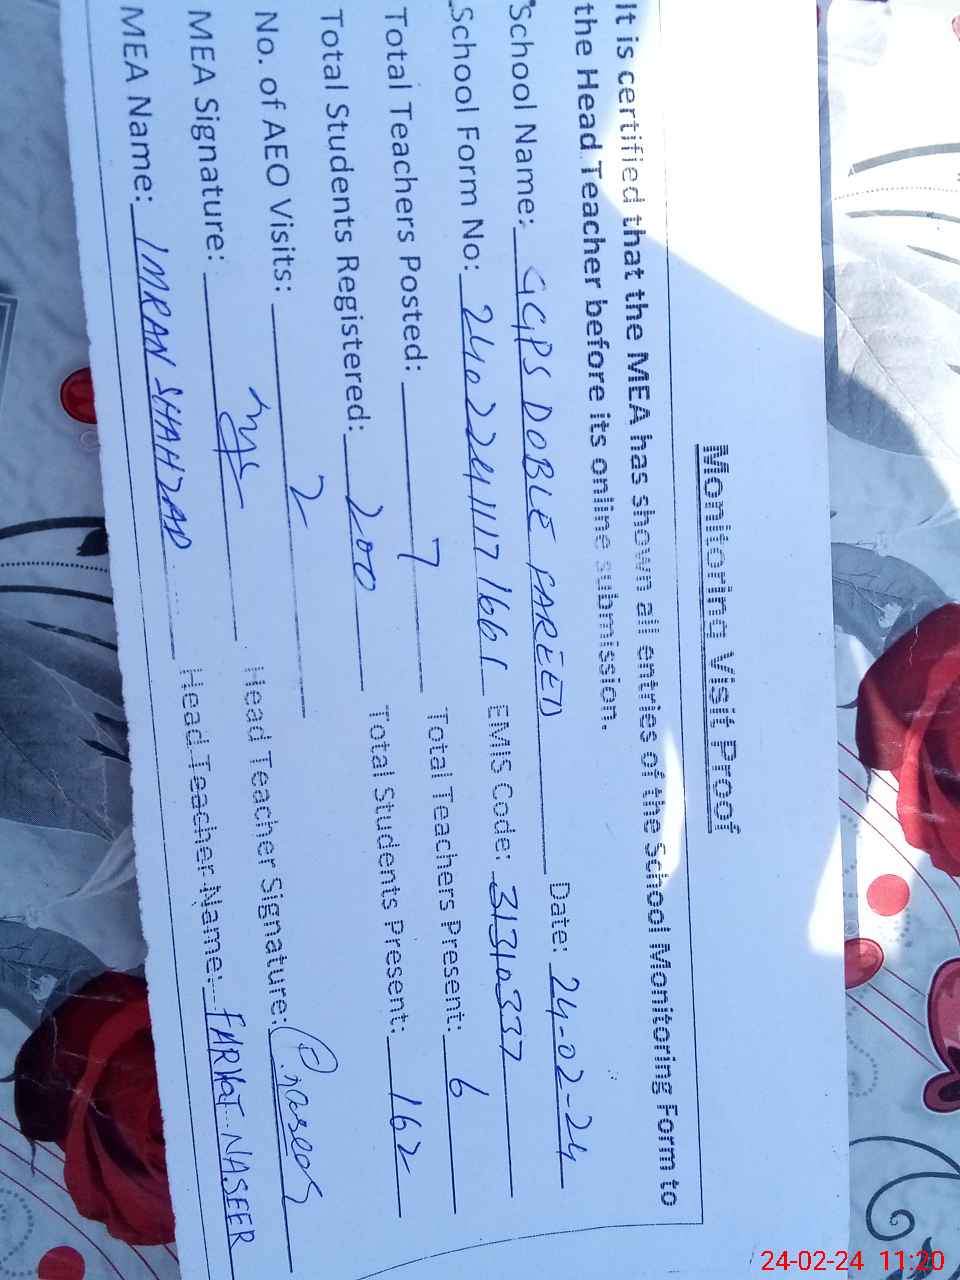 Monitoring Visit Proof
It is certified that the MEA has shown all entries of the School Monitoring Form to
the Head Teacher before its online submission.
School Name: GGPS DOBLE FAREED Date: 24-02-24
School Form No: EMIS Code: 31310337
Total Teachers Posted: 7 Total Teachers Present: 6
Total Students Registered: 200 Total Students Present: 162
No. of AEO Visits: 2
MEA Signature: Head Teacher Signature:
MEA Name: IMRAN SHAHZAD Head Teacher Name: FARHAT NASEER
24-02-24 11:20